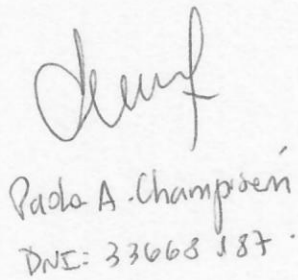 Paola A. Champonen
DNI: 33668 187.